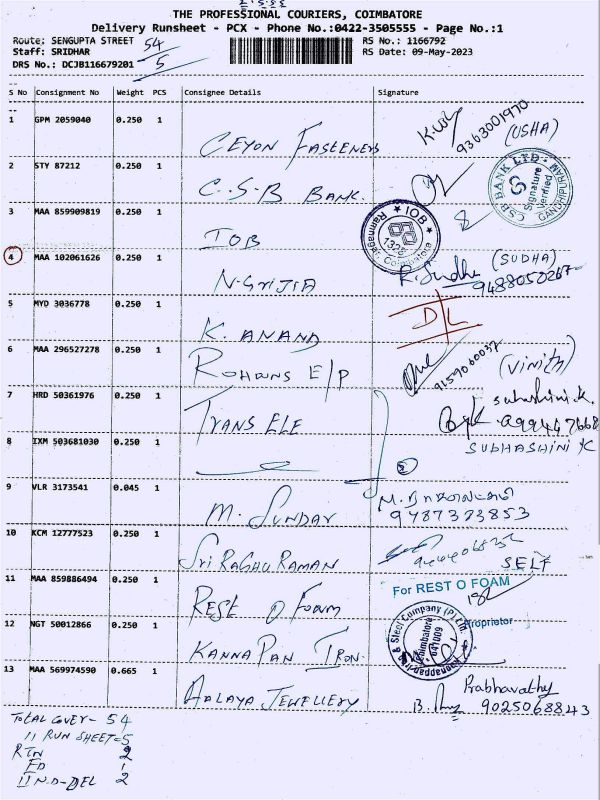 THE PROFESSIONAL COURIERS, COIMBATORE
Delivery Runsheet - PCX - Phone No.:0422-3505555 - Page No.:1
Route: SENGUPTA STREET 54 RS No.: 1166792
Staff: SRIDHAR RS Date: 09-May-2023
DRS No.: DCJB116679201 5
S No Consignment No Weight PCS Consignee Details Signature
1 GPM 2059040 0.250 1 CEYON FASTENERS 9363001970 (USHA)
2 STY 87212 0.250 1 C.S.B BANK. CSB BANK LTD. Signature Verified GANDHIPURAM
3 MAA 859909819 0.250 1 IOB IOB Ramnagar, Coimbatore 1328
4 MAA 102061626 0.250 1 N-GRIJIA R. Sudha (SUDHA) 9488050267
5 MYD 3036778 0.250 1 K. ANAND D/L
6 MAA 296527278 0.250 1 ROHANS E/P 9159060037 (Vinith)
7 HRD 50361976 0.250 1 TRANS ELE Subashini.K.
SUBHASHINI K
8 IXM 503681030 0.250 1
9 VLR 3173541 0.045 1 M. SUNDAR 9787373853
10 KCM 12777523 0.250 1 SRI RAGHU RAMAN SELF
11 MAA 859886494 0.250 1 REST O FOAM For REST O FOAM
Proprietor
12 NGT 50012866 0.250 1 KANNAPAN IRON Kannappan Iron & Steel Company (P) Ltd. Coimbatore 641009
13 MAA 569974590 0.665 1 AALAYA JEWELLERY Prabhavathy
9025068843
TOTAL COVER- 54
11 RUN SHEET=5
RTN 2
FD 1
II N.D-DEL 2